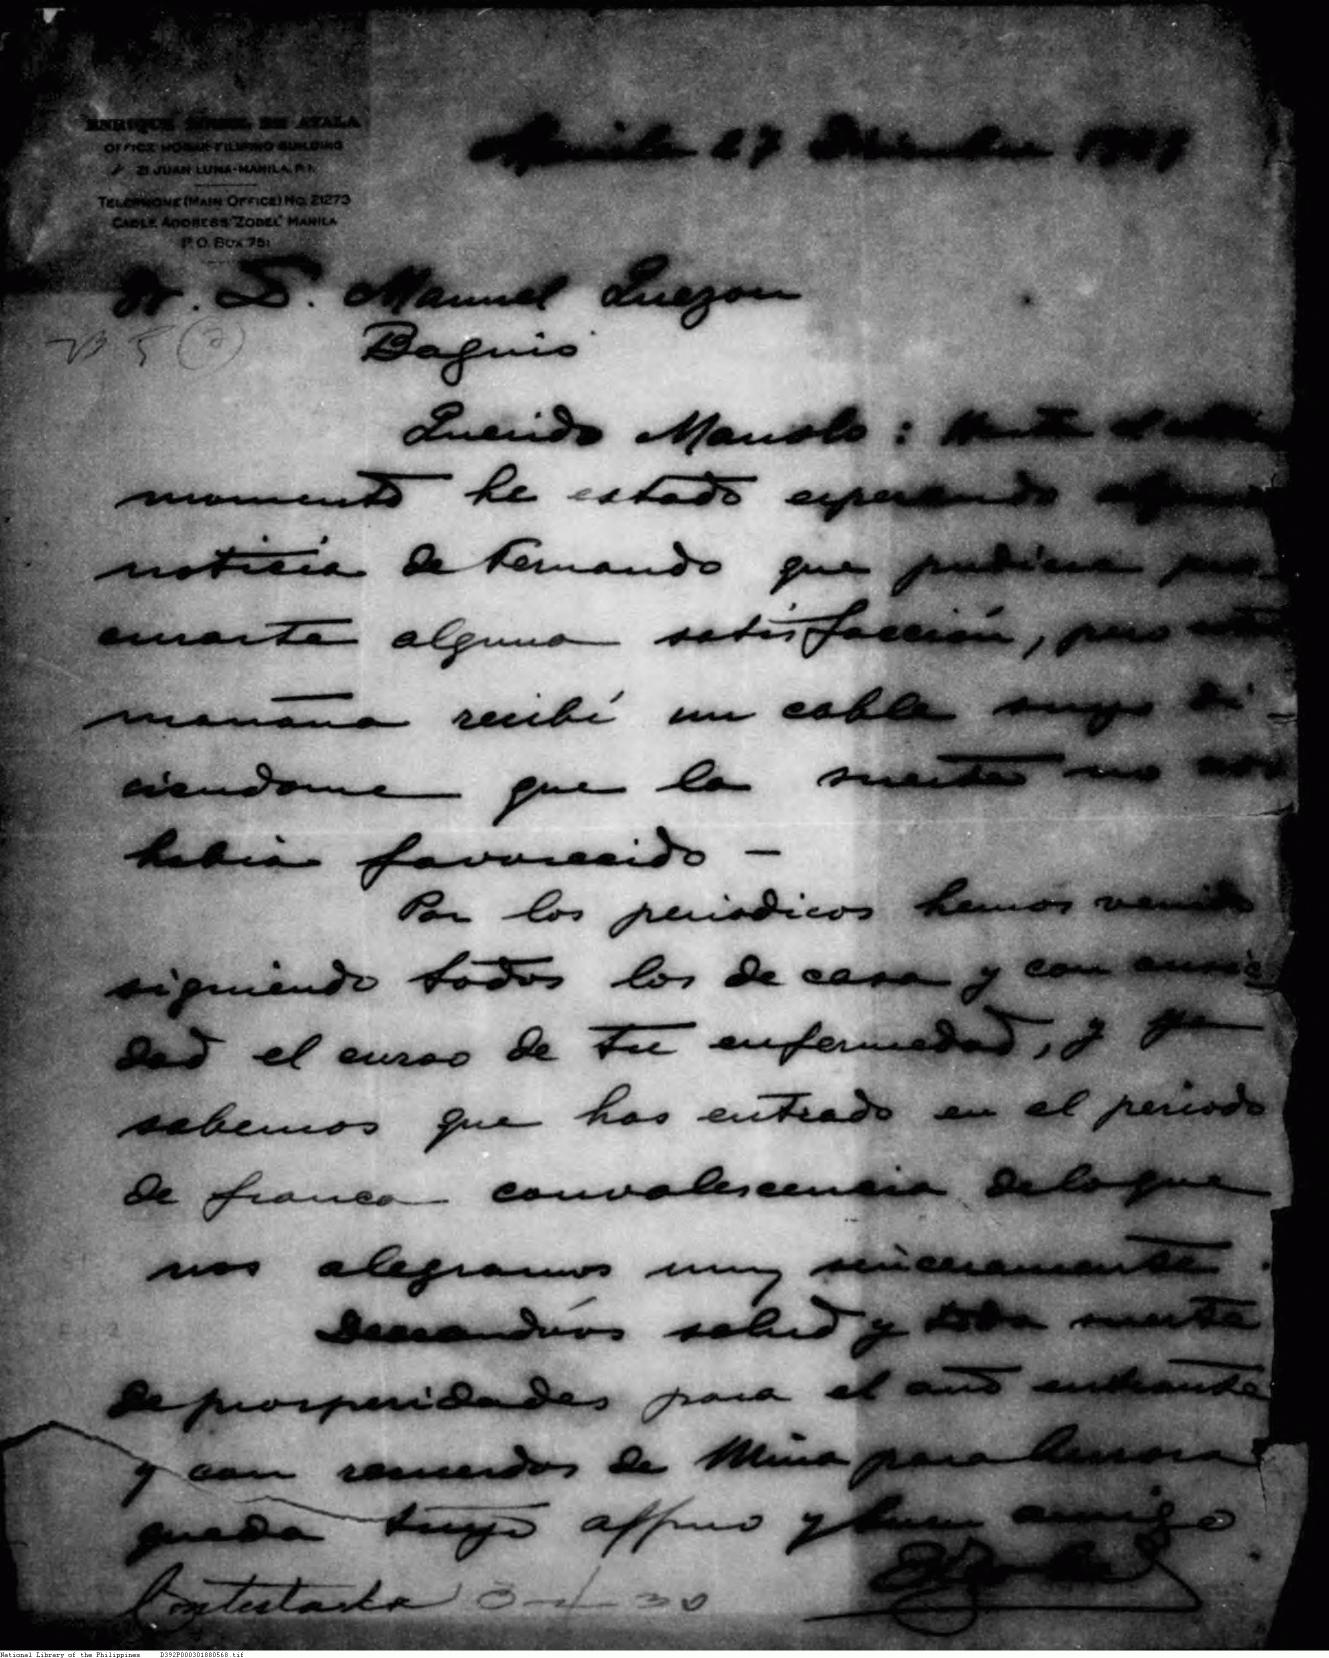 ENRIQUE ZOBEL DE AYALA
OFFICE HOGAR FILIPINO BUILDING
21 JUAN LUNA-MANILA, P.I.
TELEPHONE (MAIN OFFICE) NO. 21273
CABLE ADDRESS "ZOBEL" MANILA
P.O. BOX 751
Manila 27 Diciembre 1929
Sr. D. Manuel Quezon
Baguio
Querido Manolo: Hasta el
momento he estado esperando alguna
noticia de Fernando que pudiera pro-
curarte alguna satisfacción, pero esta
mañana recibí un cable suyo di-
ciendome que la suerte no nos
habia favorecido —
Por los periodicos hemos venido
siguiendo todos los de casa y con ansie
dad el curso de tu enfermedad, y ya
sabemos que has entrado en el periodo
de franca convalescencia de lo que
nos alegramos muy sinceramente.
Deseandoós salud y toda suerte
de prosperidades para el año entrante
y con recuerdos de Mina para Aurora
queda tuyo affmo y buen amigo
EZobel
Contestada 3-1-30
National Library of the Philippines D392P000301880568.tif